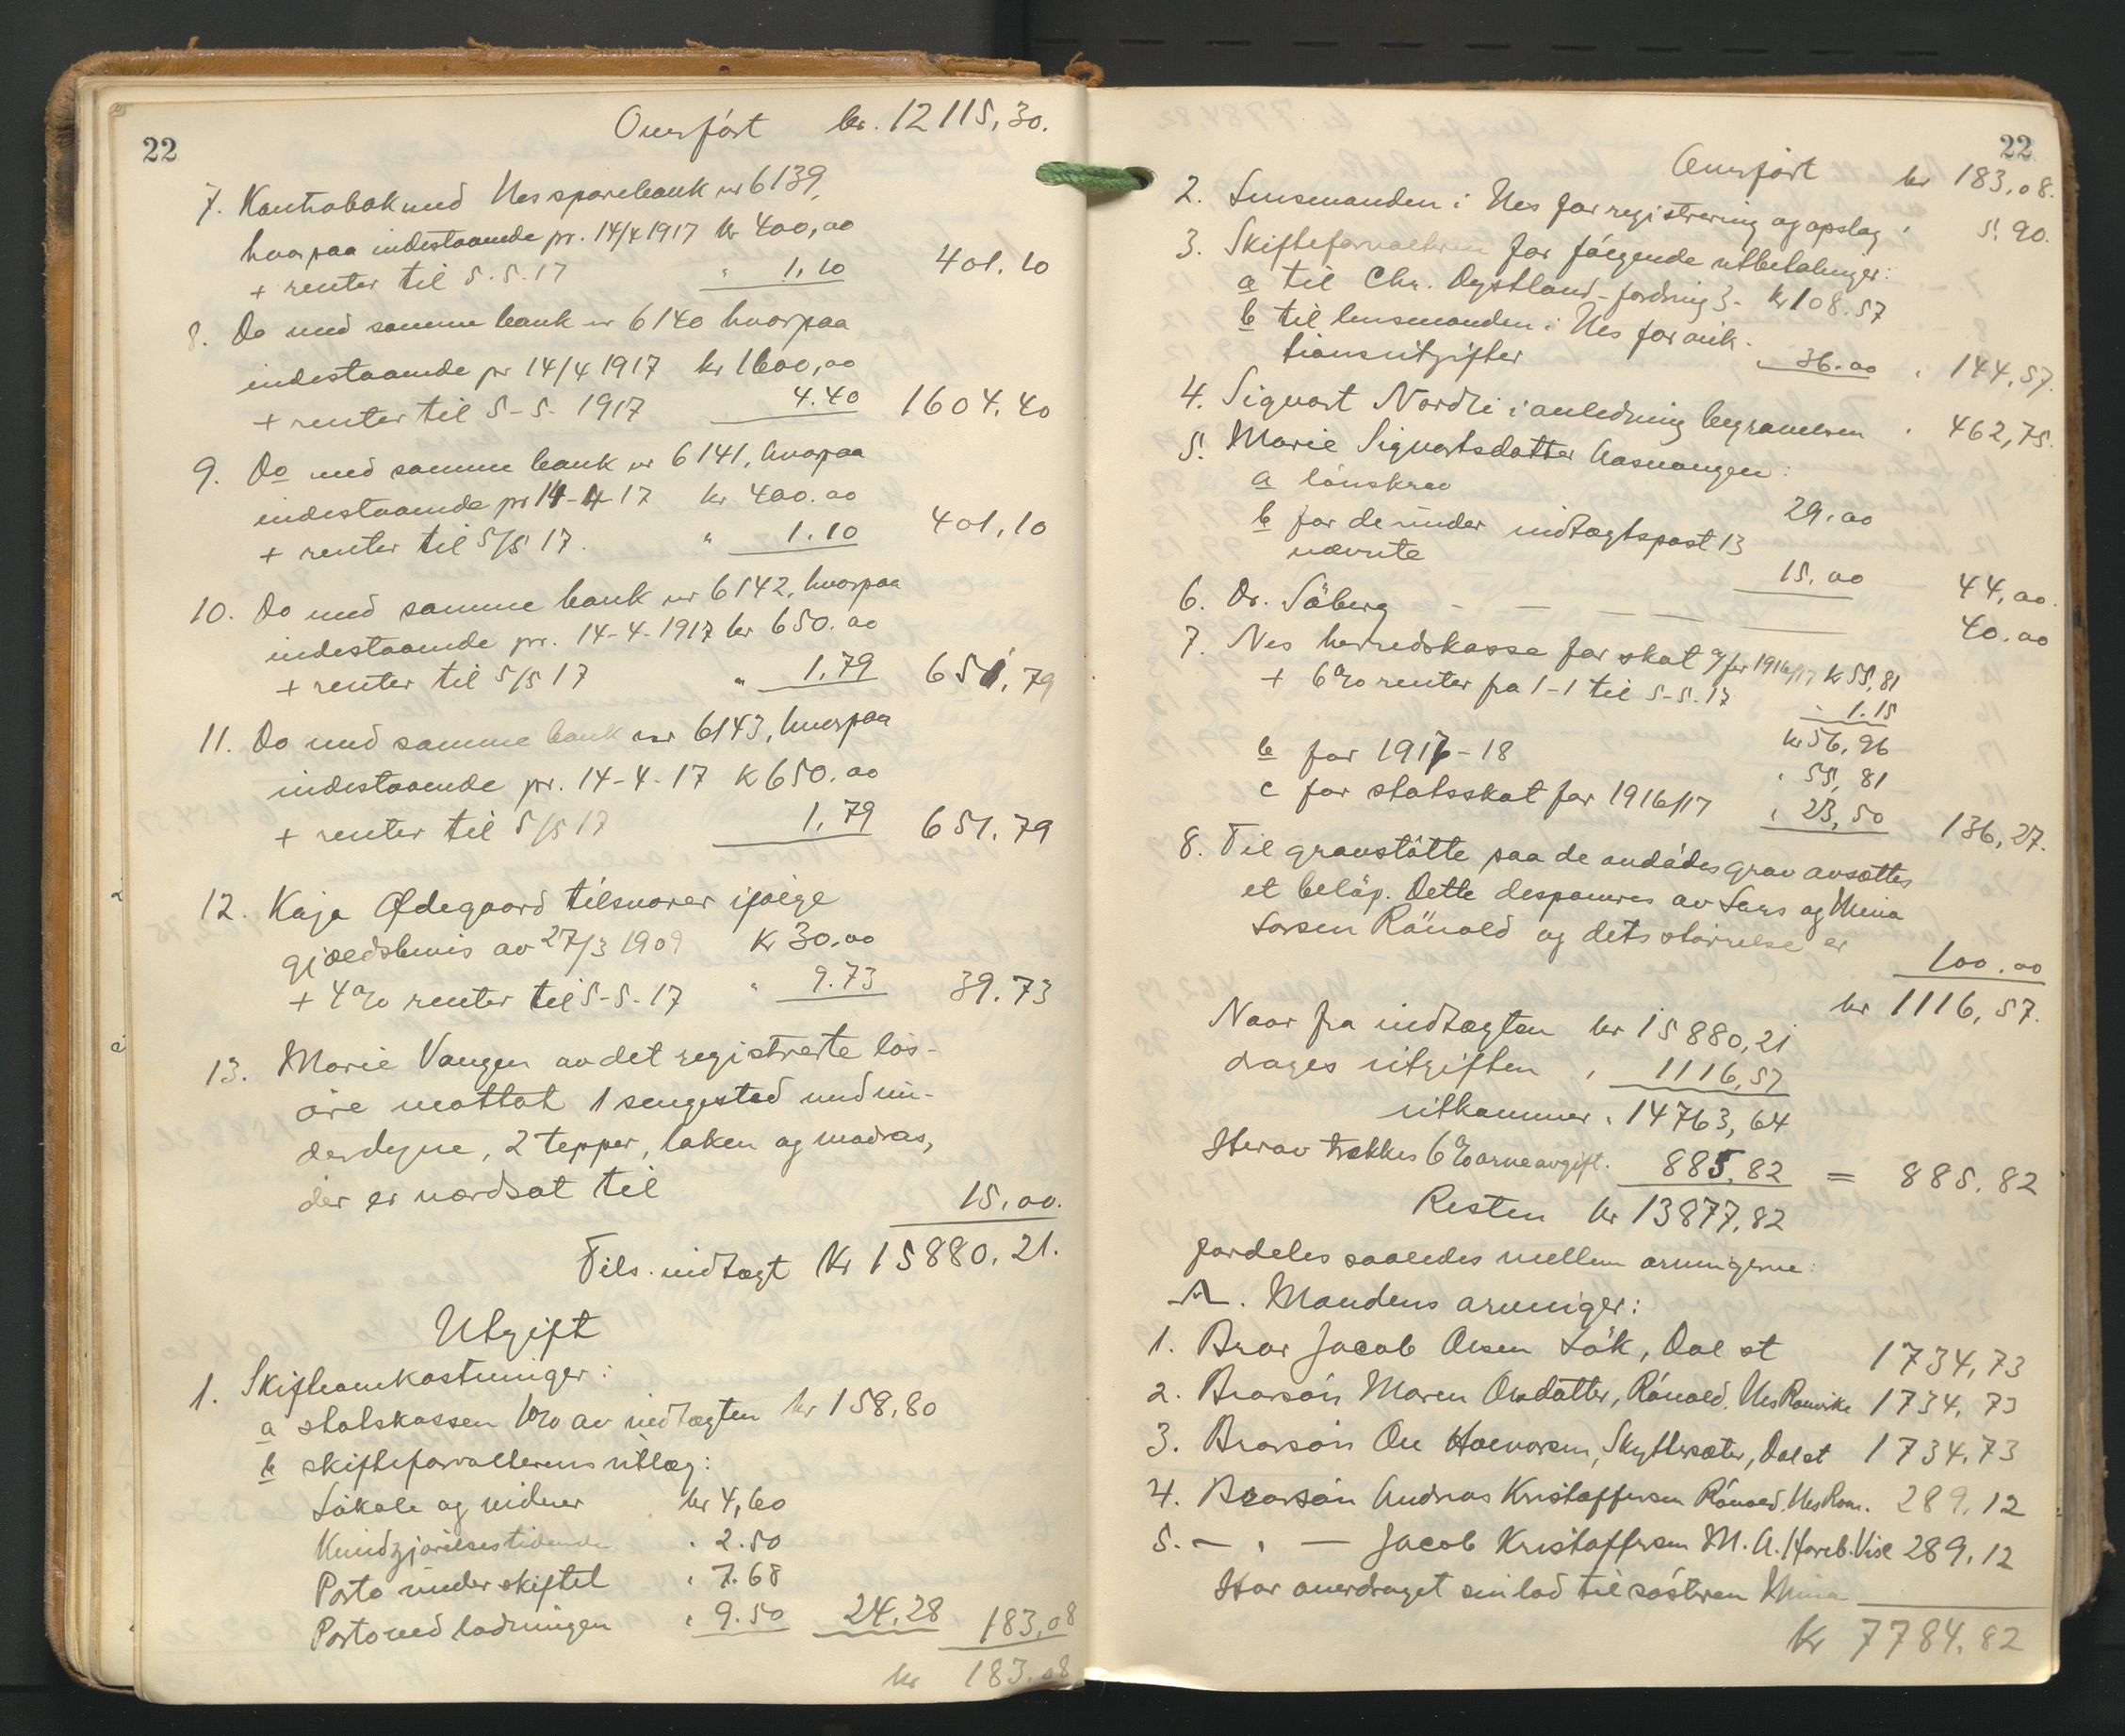 22
Overført kr. 12115,30.
7. Kontrabok med Nes sparebank nr 6139,
hvorpaa indestaaende pr. 14/4 1917 kr 400,00
+ renter til 5.5.17 " 1,10 401,10
8. Do med samme bank nr 6140 hvorpaa
indestaaende pr 14/4 1917 kr 1600,00
+ renter til 5-5-1917 4.40 1604,40
9. Do med samme bank nr 6141, hvorpaa
indestaaende pr 14-4-17 kr 400.00
+ renter til 5/5 17. " 1.10 401,10
10. Do med samme bank nr 6142, hvorpaa
indestaaende pr. 14-4-1917 kr 650.00
+ renter til 5/5 17 " 1,79 651,79
11. Do med samme bank nr 6143, hvorpaa
indestaaende pr. 14-4-17 K 650.00
+ renter til 5/5 17 1,79 651,79
12. Kaja Ødegaard tilsvarer ifølge
gjældsbevis av 27/3 1909 Kr 30.00
+ 4% renter til 5-5-17 " 9.73 39.73
13. Marie Vangen av det registrerte løs-
øre mottat 1 sengested med un-
derdyne, 2 tepper, laken og madras,
der er værdsat til 15,00.
Tils. indtægt Kr 15880,21.
Utgift
1. Skifteomkostninger:
a statskassen 1% av indtægten kr 158,80
b skifteforvalterens utlæg:
Lokale og vidner kr 4,60
Kundgjørelsestidende " 2.50
Porto under skiftet " 7.68
Porto ved lodningen " 9.50 24,28 183,08
kr 183.08
22
Overført kr 183,08.
2. Lensmanden i Nes for registrering og opslag " 5.90.
3. Skifteforvalteren for følgende utbetalinger:
a til Chr. Dystland - fordring 3 - kr 108.57
b til lensmanden i Nes for auk-
tionsutgifter " 36.00 " 144,57.
4. Sigvart Nordli i anledning begravelsen " 462,75.
5. Marie Sigvartsdatter Aasvangen:
a lønskrav 29,00
b for de under indtægtspost 13
nævnte 15,00 44,00.
6. Dr. Søberg 40.00
7. Nes herredskasse for skat a/ for 1916/17 K 55,81
+ 6% renter fra 1-1 til 5-5-17 " 1.15
kr 56,96
b for 1917-18 " 55,81
c for statsskat for 1916/17 " 23,50 136,27.
8. Til gravstøtte paa de avdødes grav avsættes
et beløp. Dette desponeres av Lars og Mina
Larsen Rånåld og dets størrelse er 100.00
kr 1116,57.
Naar fra indtægten kr 15880,21
drages utgiften " 1116,57
utkommer " 14763,64
Herav trækkes 6% arveavgift. 885,82 = 885.82
Resten kr 13877,82
fordeles saaledes mellem arvingerne:
A. Mandens arvinger:
1. Bror Jacob Olsen Løk, Dal st 1734,73
2. Brorsøn Maren Olsdatter, Rånåld, Nes Romerike 1734,73
3. Brorsøn Ole Halvorsen, Skyttersæter, Dal st 1734,73
4. Brorsøn Andreas Kristoffersen Rånåld, Nes Rom. 289,12
5. - " - Jacob Kristoffersen M. A. 289,12
Har overdraget sin lod til søsteren Mina
Kr 7784,82